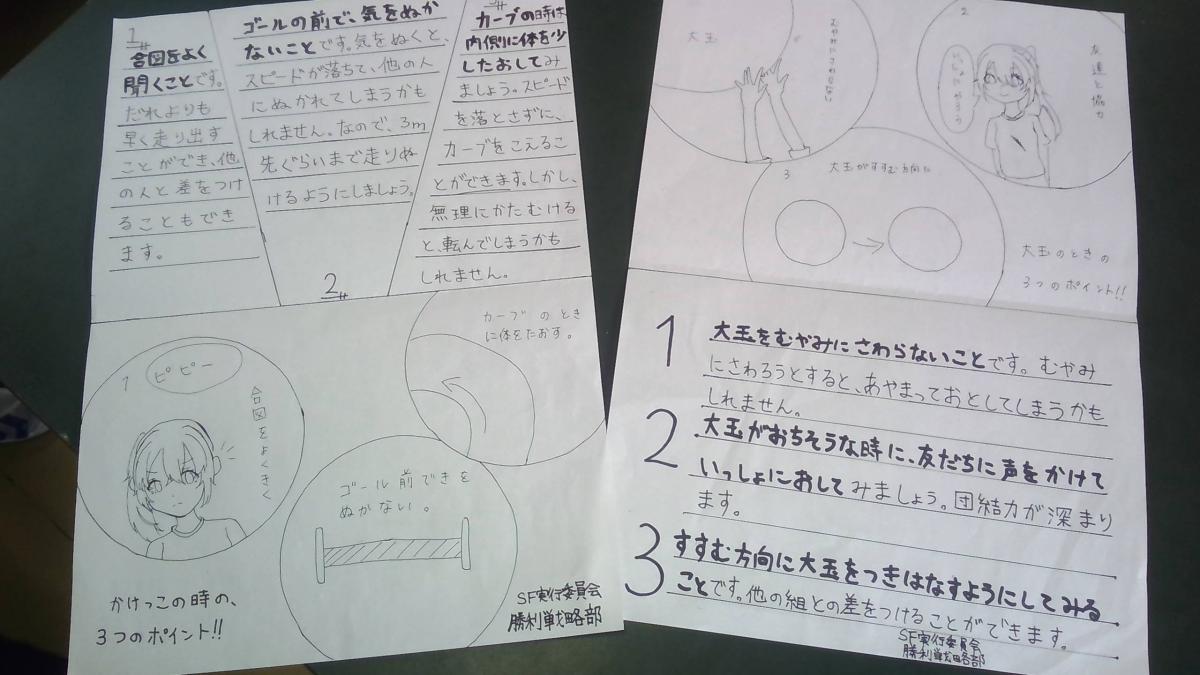 1つ目
合図をよく
聞くことです。
だれよりも
早く走り出す
ことができ、他
の人と差をつけ
ることもでき
ます。
ゴールの前で、気をぬか
ないことです。気をぬくと、
スピードが落ちて、他の人
にぬかれてしまうかも
しれません。なので、3m
先ぐらいまで走りぬ
けるようにしましょう。
2つ目
カーブの時は
内側に体を少
したおしてみ
ましょう。スピード
を落とさずに、
カーブをこえるこ
とができます。しかし、
無理にかたむける
と、転んでしまうかも
しれません。
1
ピピー
合図をよくきく
カーブのとき
に体をたおす。
ゴール前できを
ぬかない。
かけっこの時の、
3つのポイント!!
SF実行委員会
勝利戦略部
大玉
むやみにさわらない
2
友達と協力
3
大玉がすすむ方向に
大玉のときの
3つのポイント!!
1 大玉をむやみにさわらないことです。むやみ
にさわろうとすると、あやまっておとしてしまうかも
しれません。
2 大玉がおちそうな時に、友だちに声をかけて
いっしょにおしてみましょう。団結力が深まり
ます。
3 すすむ方向に大玉をつきはなすようにしてみる
ことです。他の組との差をつけることができます。
SF実行委員会
勝利戦略部